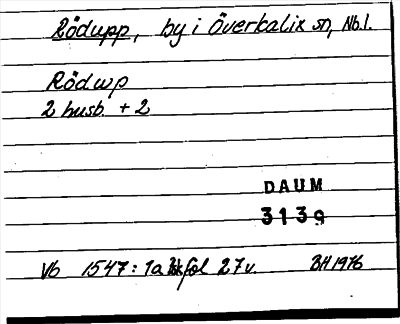 Rödupp, by i Överkalix sn, Nb.l.
Rödwp
2 husb. + 2
DAUM
3139
Vb 1547: 1a Bkfol 27v. BH 1976